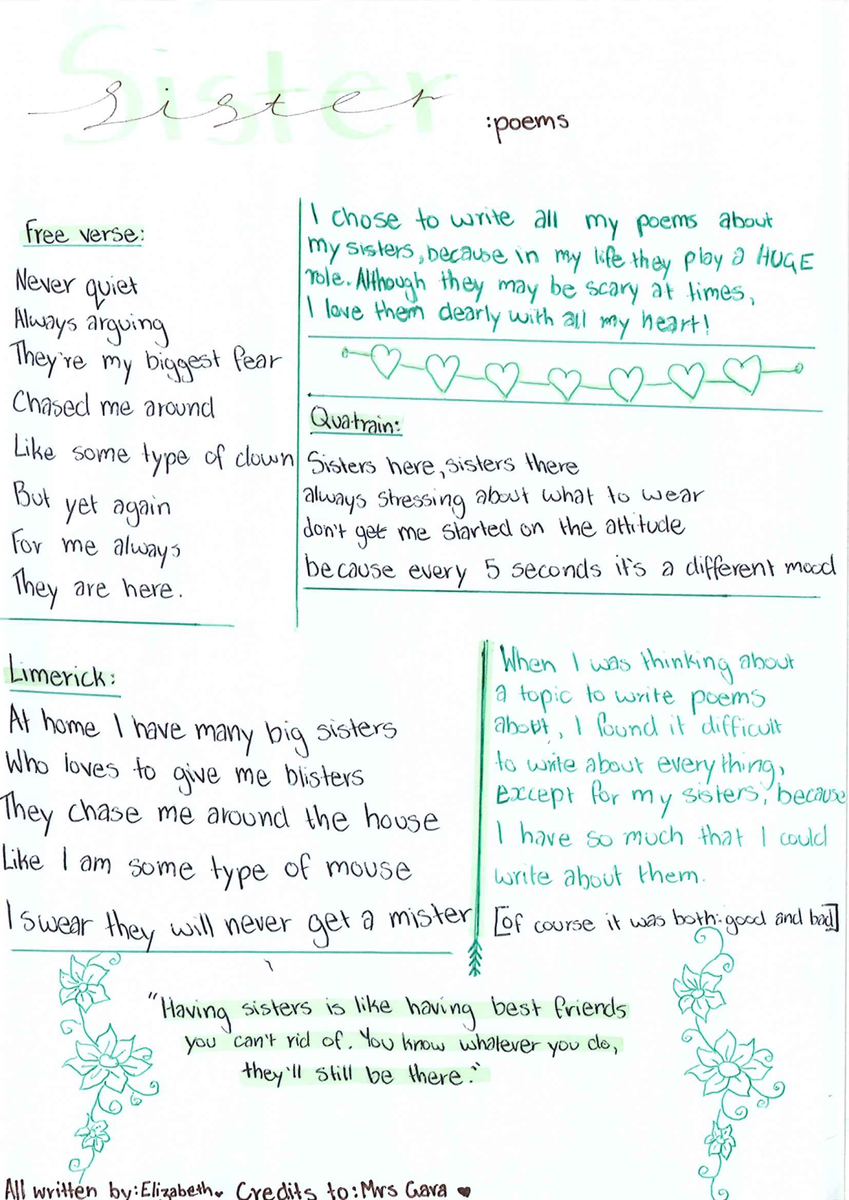 Sister
sister
:poems
Free verse:
Never quiet
Always arguing
They're my biggest fear
Chased me around
Like some type of clown
But yet again
For me always
They are here.
I chose to write all my poems about
my sisters, because in my life they play a HUGE
role. Although they may be scary at times,
I love them dearly with all my heart!
Quatrain:
Sisters here, sisters there
always stressing about what to wear
don't get me started on the attitude
because every 5 seconds it's a different mood
Limerick:
At home I have many big sisters
Who loves to give me blisters
They chase me around the house
Like I am some type of mouse
I swear they will never get a mister
When I was thinking about
a topic to write poems
about, I found it difficult
to write about everything,
except for my sisters, because
I have so much that I could
write about them.
[of course it was both: good and bad]
"Having sisters is like having best friends
you can't rid of. You know whatever you do,
they'll still be there."
All written by: Elizabeth♥ Credits to: Mrs Gava ♥